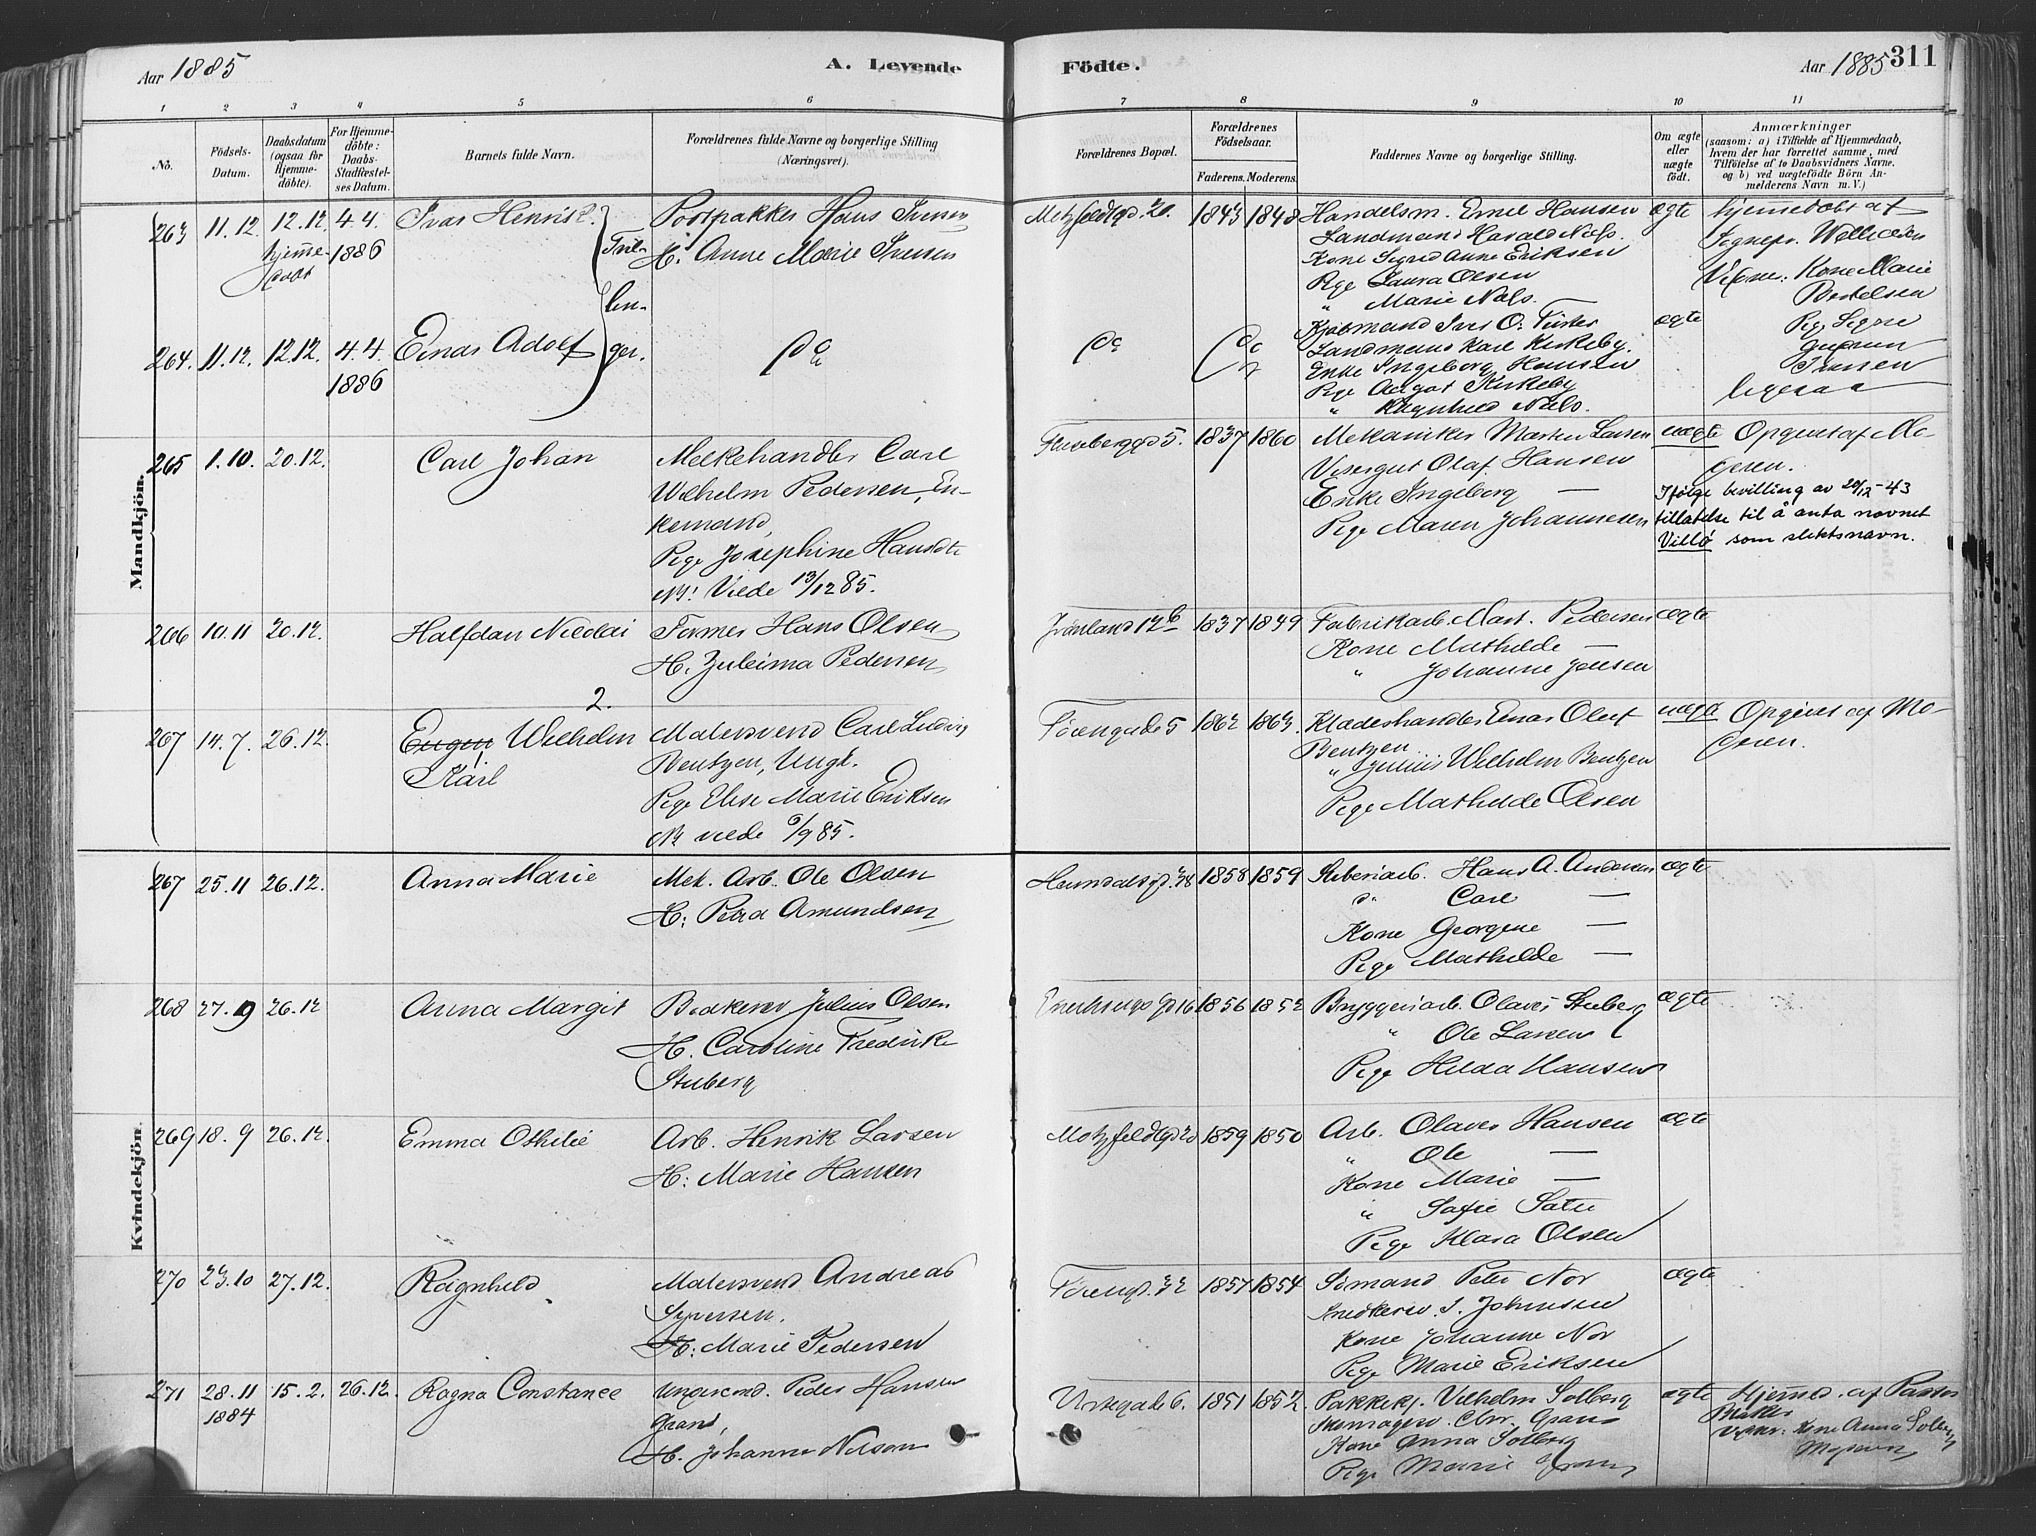 Aar 1885
A. Levende
Födte.
Aar 1885
311
1 2 3 4 5 6 7 8 9 10 11
No.
Födsels-
Datum.
Daabsdatum
(ogsaa for
Hjemme-
döbte).
For Hjemme-
döbte:
Daabs-
Stadfæstel-
ses Datum.
Barnets fulde Navn.
Forældrenes fulde Navne og borgerlige Stilling
(Næringsvei).
Forældrenes Bopæl.
Forældrenes
Födselsaar.
Faderens. Moderens.
Faddernes Navne og borgerlige Stilling.
Om ægte
eller
uægte
födt.
Anmærkninger
(saasom: a) i Tilfælde af Hjemmedaab,
hvem der har forrettet samme, med
Tilföielse af to Daabsvidners Navne,
og b) ved uægtefödte Börn An-
melderens Navn m. V.)
Mandkjön.
263 11.12. 12.12. 4.4.
hjemme-
døbt
1886
Ivar Henrik.
Tvil-
lin-
ger.
Postpakker Hans Iversen
H. Anne Marie Iversen
Motzfeldtgd. 20. 1843 1848
Handelsm. Emil Hansen
Landmand Harald Næls.
Kone Sigrid Anne Eriksen
Pige Laura Olsen
" Marie Næls.
ægte
hjemmedøbt af
Vidner: Kone Marie
Bertelsen
Pige Signe
Gudrun
Iversen
264. 11.12. 12.12. 4.4.
1886
Einar Adolf
Do
Do
Do
Kjøbmand Iver O.
Landmand Karl Kirkeby.
Enke Ingeborg Hansen
Pige Aagot Kirkeby
" Ragnhild Næls.
ægte
ligesaa
265 1.10. 20.12.
Carl Johan
Melkehandler Carl
Wilhelm Pedersen, En-
kemand,
Pige Josephine Hansdtr
N! Viede 13/12 85.
5. 1837 1860
Mekaniker Morten Larsen
Visergut Olaf Hansen
Enke Ingeborg —
Pige Maren Johannesen
uægte
Opgivet af Mo-
deren.
Ifølge bevilling av 20/12-43
tillatelse til å anta navnet
Villø som slektsnavn.
266 10.11 20.12.
Halfdan Nicolai
Former Hans Olsen
H. Zuleima Pedersen
Grønland 12b 1837 1849
Fabrikarb. Mart. Pedersen
Kone Mathilde —
" Johanne Jensen
ægte
267 14.7. 26.12.
2.
Eugen Wilhelm
1.
Karl
Malersvend Carl Ludvig
Bentzen, Ungk.
Pige Elise Marie Eriksen
N! viede 9/9 85.
Tøiengade 5 1862 1863.
Klædeshandler Einar Oluf
Bentzen
" Julius Wilhelm Bentzen
Pige Mathilde Olsen
uægte
Opgivet af Mo-
deren.
Kvindekjön.
267 25.11 26.12.
Anna Marie
Mek. Arb. Ole Olsen
H: Petra Amundsen
1858 1859
Støberiarb. Hans A. Andersen
" Carl —
Kone Georgine —
Pige Mathilde —
ægte
268 27.9 26.12
Anna Margit
Bødkersv Julius Olsen
H. Caroline Fredrikke
Stuberg
16 1856 1852
Bryggeriarb. Olaves Stuberg
" Ole Larsen
Pige Hilda Hansen
ægte
269 18.9 26.12.
Emma Othilie
Arb. Henrik Larsen
H: Marie Hansen
Motzfeldtgd 20 1859 1850
Arb. Olaves Hansen
" Ole —
Kone Marie —
" Sofie
Pige Klara Olsen
ægte
270 23.10 27.12.
Ragnhild
Malersvend Andreas
Syversen.
H: Marie Pedersen
Tøiengd. 1857 1854
Sømand Peter Nor
Snedkersv. S. Johnsen
Kone Johanne Nor
Pige Marie Eriksen
ægte
271 28.11
1884
15.2. 26.12.
Ragna Constance
Peder Hansen
Gran,
H. Johanne Nilsen
Urtegade 6. 1851 1852.
Pakkekj. Vilhelm Solberg
Skomagersv. Chr. Gran
Kone Anna Solberg
Pige Marie Gran
ægte
Hjemmed. af Pastor
Vidner: Kone Anna Solberg